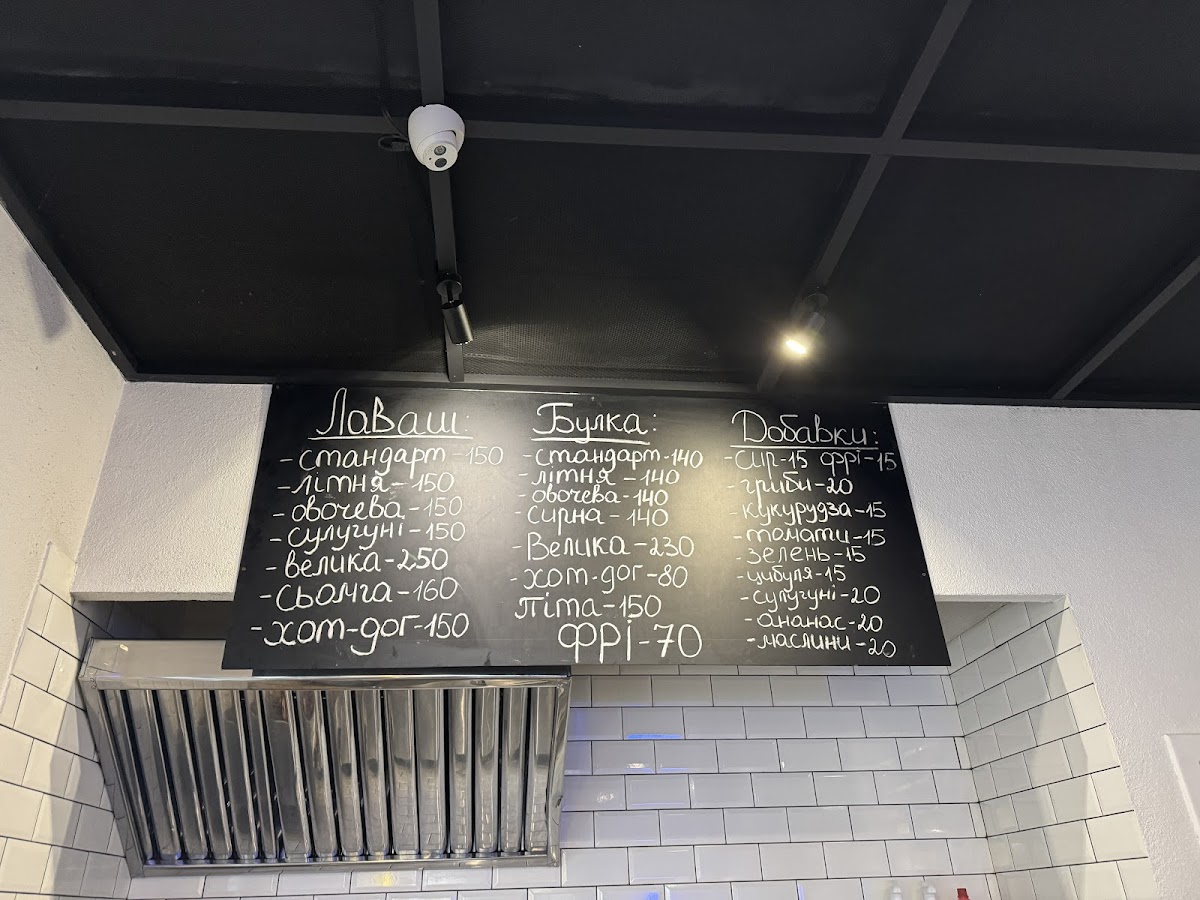 Лаваш:
-стандарт-150
-літня-150
-овочева-150
-сулугуні-150
-велика-250
-сьомга-160
-хот-дог-150
Булка:
-стандарт-140
-літня-140
-овочева-140
-сирна-140
-Велика-230
-хот-дог-80
Піта-150
ФРІ-70
Добавки:
-сир-15 фрі-15
-гриби-20
-кукурудза-15
-томати-15
-зелень-15
-цибуля-15
-сулугуні-20
-ананас-20
-маслини-20